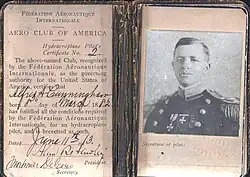 FÉDÉRATION AÉRONAUTIQUE
INTERNATIONALE
AERO CLUB OF AMERICA
Hydroaeroplane Pilot
Certificate No. 2
The above-named Club, recognized
by the Fédération Aéronautique
Internationale, as the governing
authority for the United States of
America, certifies that
Alfred A. Cunningham
born 8th day of March 1882
has fulfilled all the conditions required
by the Fédération Aéronautique
Internationale, for an hydroaeroplane
pilot, and is brevetted as such.
Dated June 11th 13.
President
Secretary.
Signature of pilot: